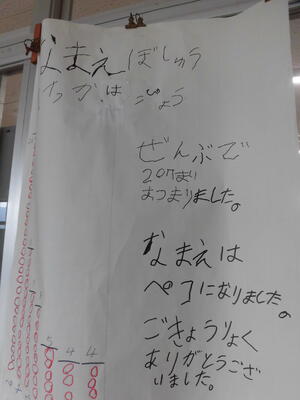 なまえぼしゅう
けっかはっぴょう
ぜんぶで
207まい
あつまりました。
なまえは
ペコになりました。
ごきょうりょく
ありがとうござ
いました。
5 4 4